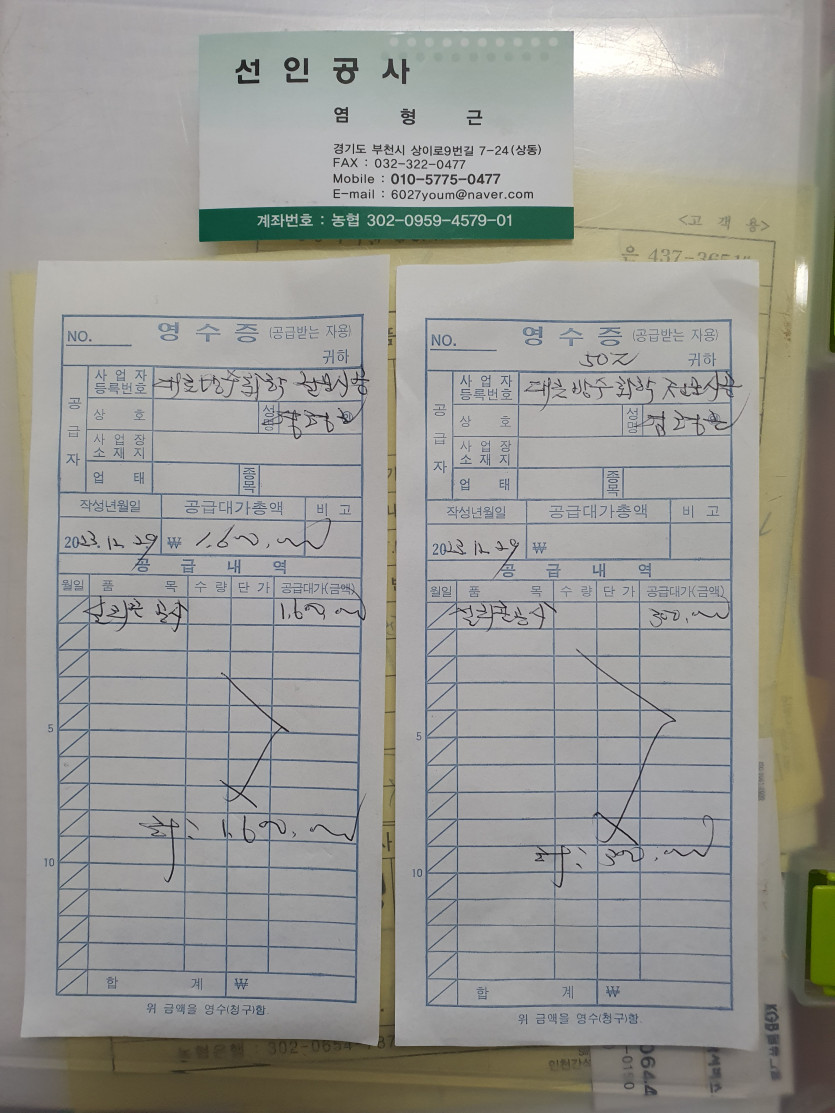 선인공사
염 형 근
경기도 부천시 상이로9번길 7-24(상동)
FAX : 032-322-0477
Mobile : 010-5775-0477
E-mail : 6027youm@naver.com
계좌번호 : 농협 302-0959-4579-01
<고 객 용>
은 437-3651
NO.
영 수 증 (공급받는 자용)
귀하
공급자
사업자등록번호
상 호
성명
사업장소재지
업 태
종목
작성년월일
공급대가총액
비 고
2023. 12. 29
₩ 1,600,000
공 급 내 역
월일 품 목 수 량 단 가 공급대가(금액)
실리콘 공사 1,600,000
5
계: 1,600,000
10
합 계 ₩
위 금액을 영수(청구)함.
NO.
영 수 증 (공급받는 자용)
귀하
공급자
사업자등록번호
상 호
성명
사업장소재지
업 태
종목
작성년월일
공급대가총액
비 고
2023. 12. 29
₩
공 급 내 역
월일 품 목 수 량 단 가 공급대가(금액)
실리콘공사 300,000
5
계: 300,000
10
합 계 ₩
위 금액을 영수(청구)함.
농협은행 302-0654-